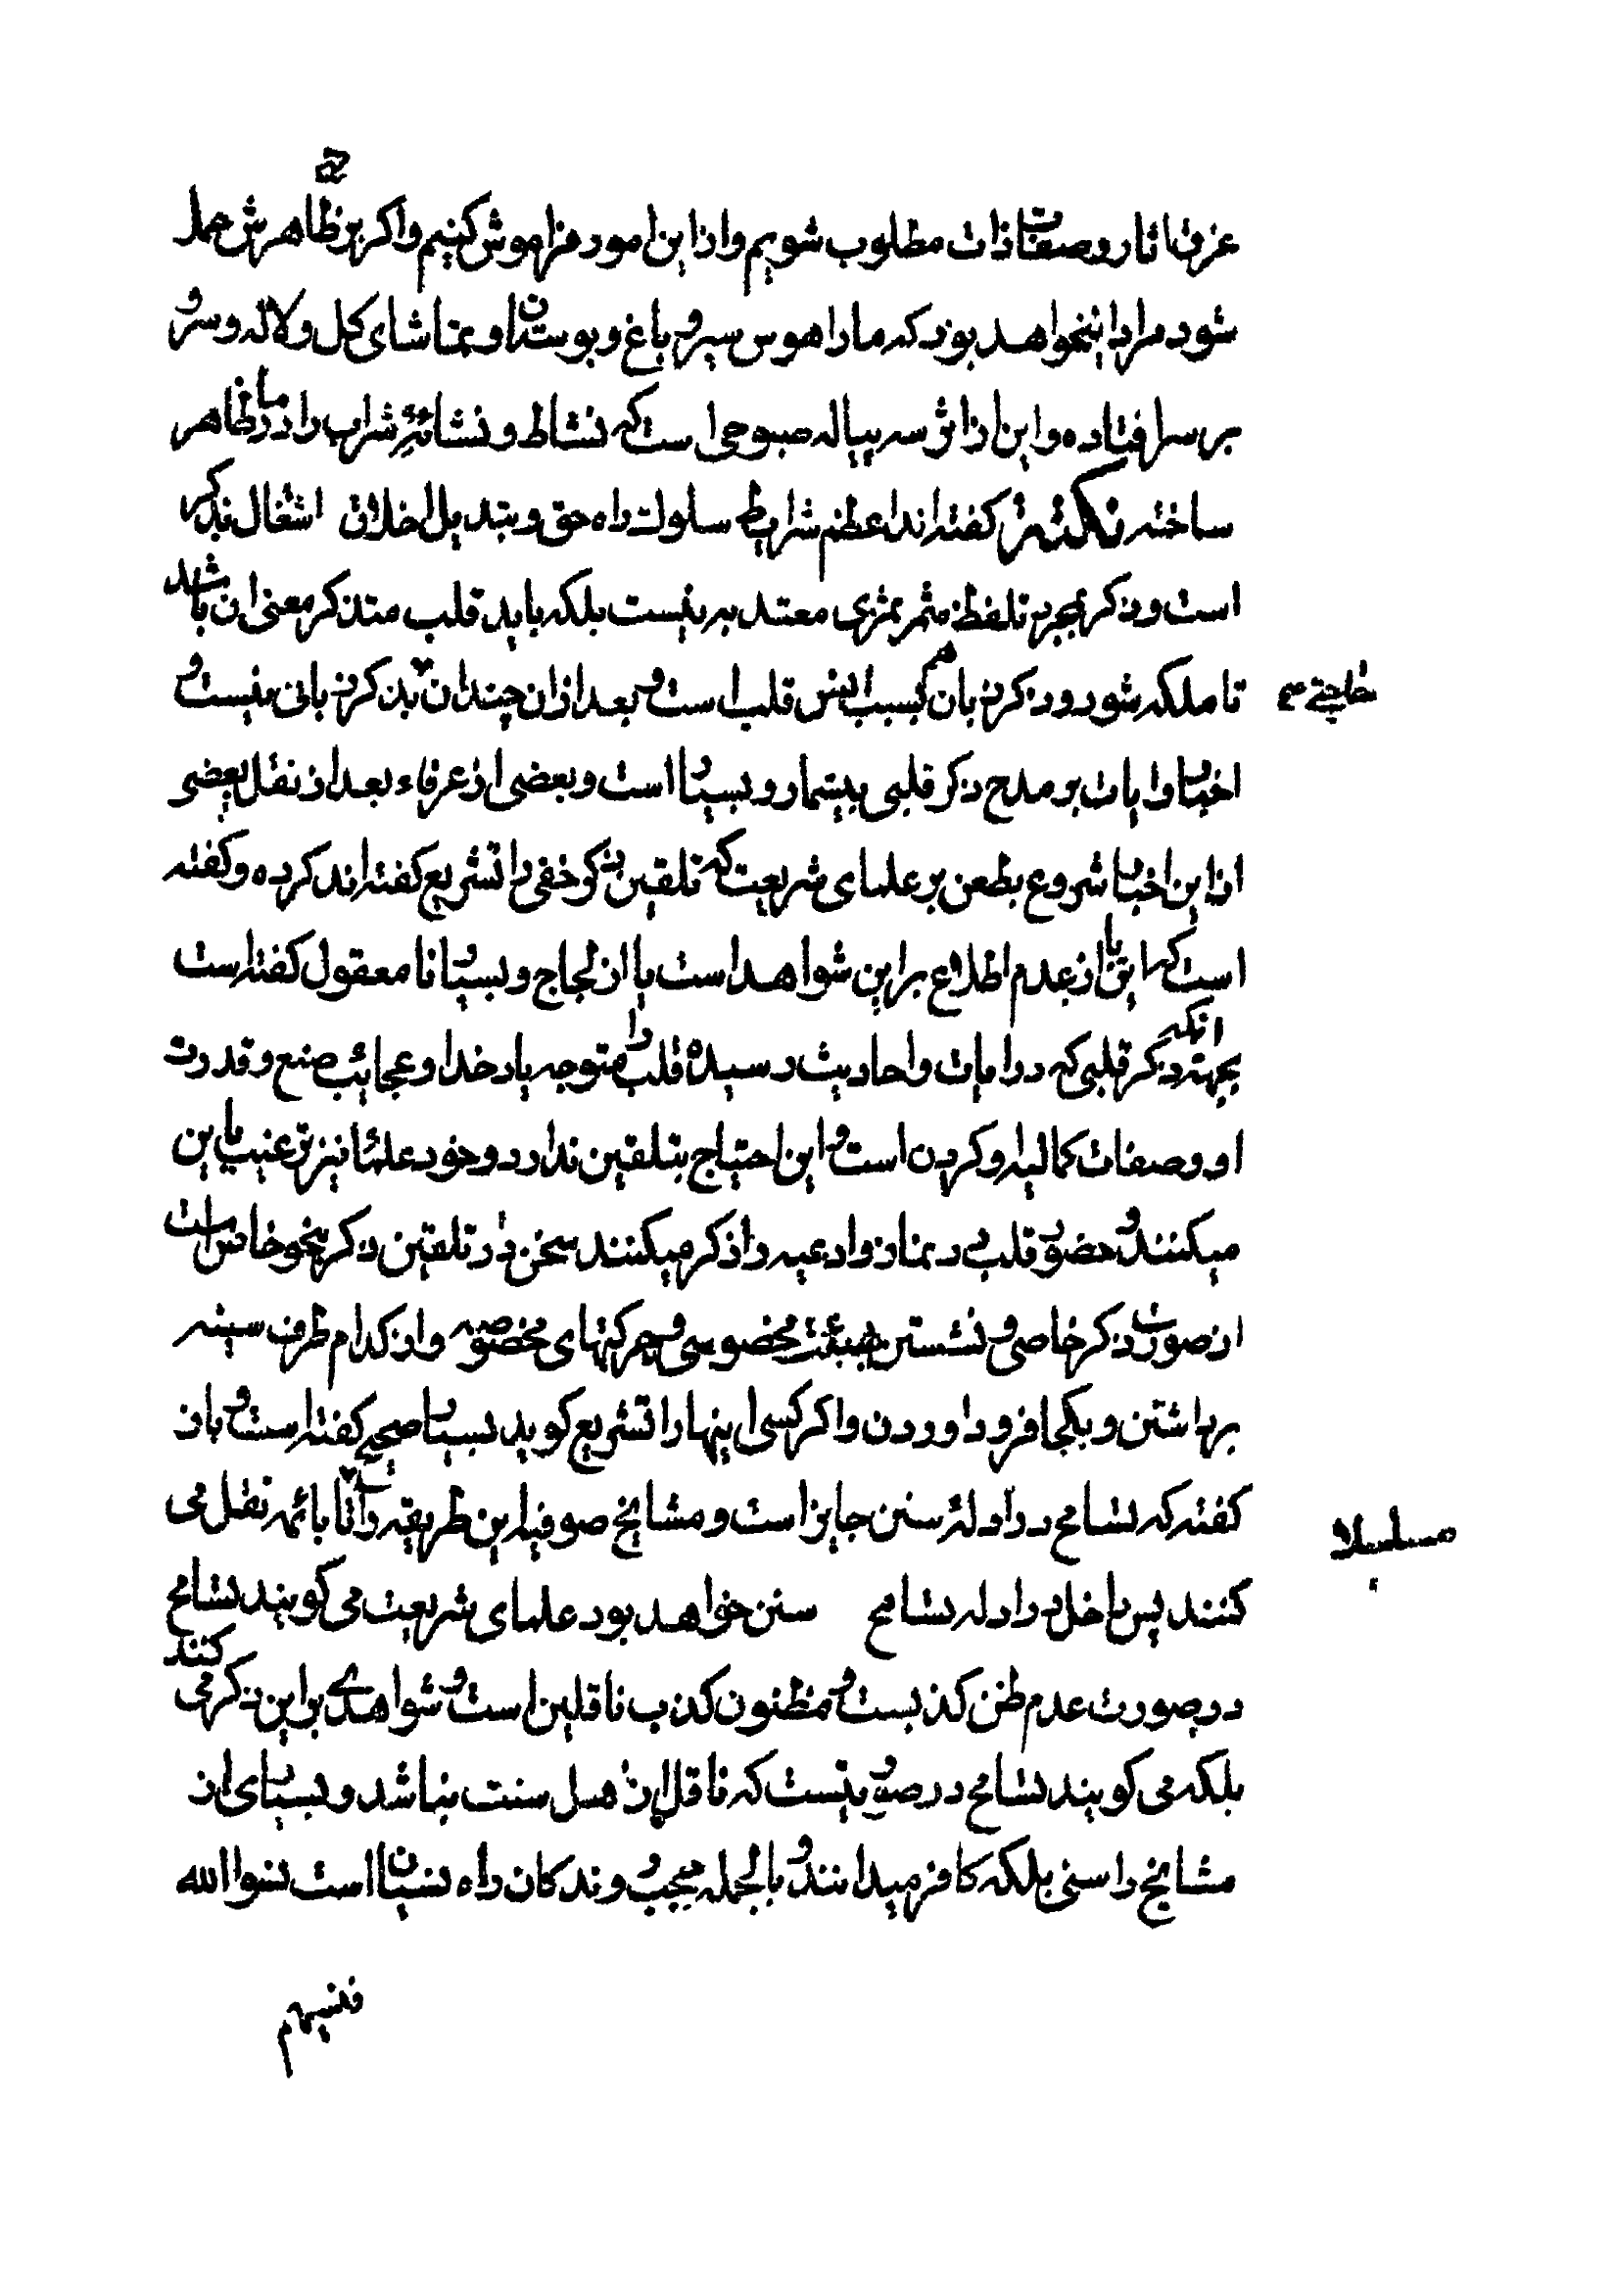 غرق اثار و صفات ذات مطلوب شویم و از این امور فراموش کنیم و اکر بر ظاهرش حمل
شود مراد این خواهد بود که ما را هوس سیر و باغ و بوستان و تماشای کل و لاله و سرو
بر سر افتاده و این از اثر سه پیاله صبوحی است که نشاط و نشائه شراب را در ما ظاهر
ساخته نکته کفته اند اعظم شرایط سلوک راه حق و تبدیل اخلاق اشتغال بذکر
است و ذکر بمجرد تلفظ مثمر ثمری معتد به نیست بلکه باید قلب متذکر معنی ان باشد
تا ملکه شود و ذکر زبان هم کسبب انس قلب است و بعد از ان چندان بذکر زبانی نیست و
حاجتی صح
اخبار و ایات بر مدح ذکر قلبی بیشمار و بسیار است و بعضی از عرفاء بعد از نقل بعضی
از این اخبار شروع بطعن بر علمای شریعت که تلقین ذکر خفی را تشریع کفته اند کرده و کفته
است که این یا از عدم اطلاع بر این شواهد است یا از لجاج و بسیار نا معقول کفته است
بجهة انکه ذکر قلبی که در ایات و احادیث رسیده قلب را متوجه یاد خدا و عجائب صنع و قدرت
او و صفات کمالیه او کردن است و این احتیاج بتلقین ندارد و خود علما نیز ترغیب باین
میکنند و حضور قلب در نماز و ادعیه را ذکر میکنند سخن در تلقین ذکر بنحو خاص است
از صورت ذکر خاصی و نشستن بهیئت مخصوصی و حرکتهای مخصوصه و از کدام طرف سینه
برداشتن و بکجا فرود اوردن و اکر کسی اینها را تشریع کوید بسیار صحیح کفته است و باز
کفته که تسامح در ادلهٔ سنن جایز است و مشایخ صوفیه این طریقه را تا بائمه نقل می
مسلسلا
کنند پس داخل در ادله تسامح سنن خواهد بود علمای شریعت می کویند تسامح
در صورت عدم ظن کذبست و مظنون کذب ناقلین است و شواهدی بر این ذکر می کنند
بلکه می کویند تسامح در صورتیست که ناقل از اهل سنت نباشد و بسیاری از
مشایخ را سنی بلکه کافر میدانند و بالجمله روندکان راه نسیان است نسوا الله
فنسیهم